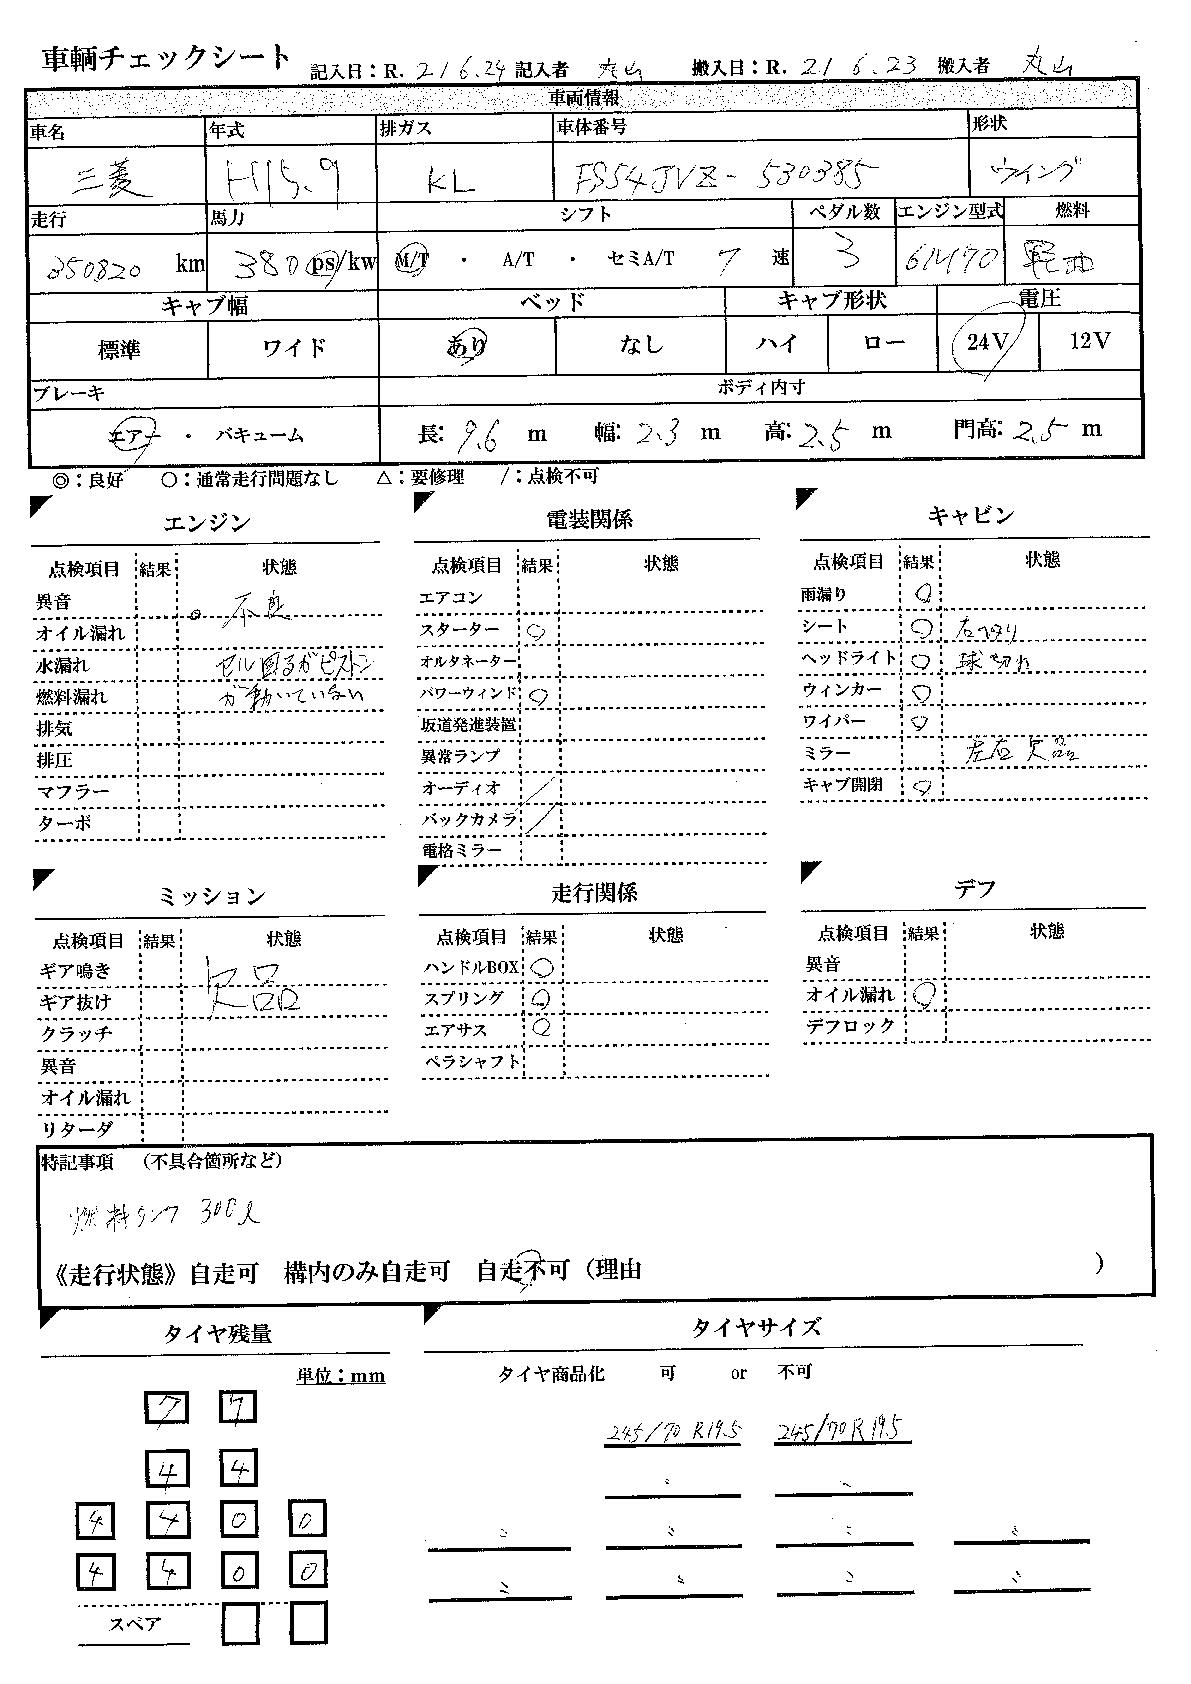 車輌チェックシート 記入日：R. 21 6.24 記入者 丸山 搬入日：R. 21 6.23 搬入者 丸山
車両情報
車名 年式 排ガス 車体番号 形状
三菱 H15.9 KL FS54JVZ-530385 ウイング
走行 馬力 シフト ペダル数 エンジン型式 燃料
350820 km 380 ps/kw M/T ・ A/T ・ セミA/T 7 速 3 6M70 軽油
キャブ幅 ベッド キャブ形状 電圧
標準 ワイド あり なし ハイ ロー 24V 12V
ブレーキ ボディ内寸
エアー ・ バキューム 長：9.6 m 幅：2.3 m 高：2.5 m 門高：2.5 m
◎：良好 ○：通常走行問題なし △：要修理 /：点検不可
エンジン
点検項目 結果 状態
異音 不良
オイル漏れ
水漏れ セル回るがピストン
燃料漏れ が動いていない
排気
排圧
マフラー
ターボ
電装関係
点検項目 結果 状態
エアコン
スターター ○
オルタネーター
パワーウィンド ○
坂道発進装置
異常ランプ
オーディオ /
バックカメラ /
電格ミラー
キャビン
点検項目 結果 状態
雨漏り ○
シート ○
ヘッドライト ○ 球切れ
ウィンカー ○
ワイパー ○
ミラー 左右欠品
キャブ開閉 ○
ミッション
点検項目 結果 状態
ギア鳴き 欠品
ギア抜け
クラッチ
異音
オイル漏れ
リターダ
走行関係
点検項目 結果 状態
ハンドルBOX ○
スプリング ○
エアサス ○
ペラシャフト
デフ
点検項目 結果 状態
異音
オイル漏れ ○
デフロック
特記事項 （不具合箇所など）
燃料タンク 300ℓ
《走行状態》自走可 構内のみ自走可 自走不可（理由 ）
タイヤ残量
単位：mm
7 7
4 4
4 4 0 0
4 4 0 0
スペア
タイヤサイズ
タイヤ商品化 可 or 不可
245/70 R19.5 245/70R19.5